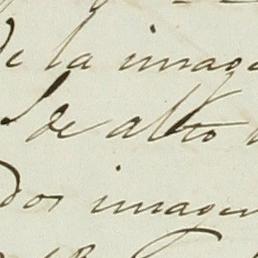 de la image
de alto
dos imagen